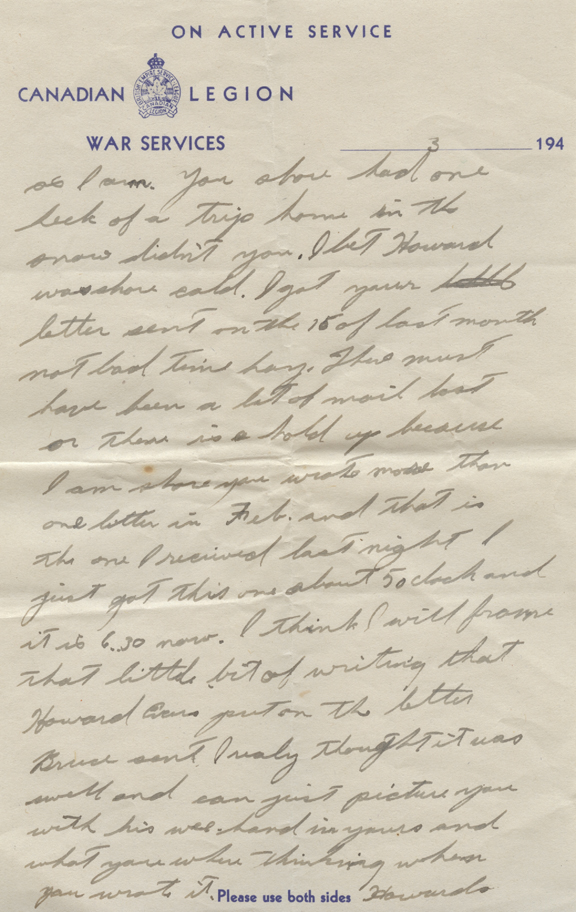 ON ACTIVE SERVICE
CANADIAN LEGION
WAR SERVICES
3 194
as I am. You shore had one
heck of a trip home in the
snow didn't you. I bet Howard
was shore cold. I got your
letter sent on the 15 of last month
not bad time hay. There must
have been a lot of mail lost
or there is a hold up because
I am shore you wrote more than
one letter in Feb. and that is
the one I received last night I
just got this one about 5 oclock and
it is 6.30 now. I think I will frame
that little bit of writing that
Howard put on the letter
Bruce sent. I realy thought it was
swell and can just picture you
with his wee hand in yours and
what you where thinking when
you wrote it. Howards
Please use both sides